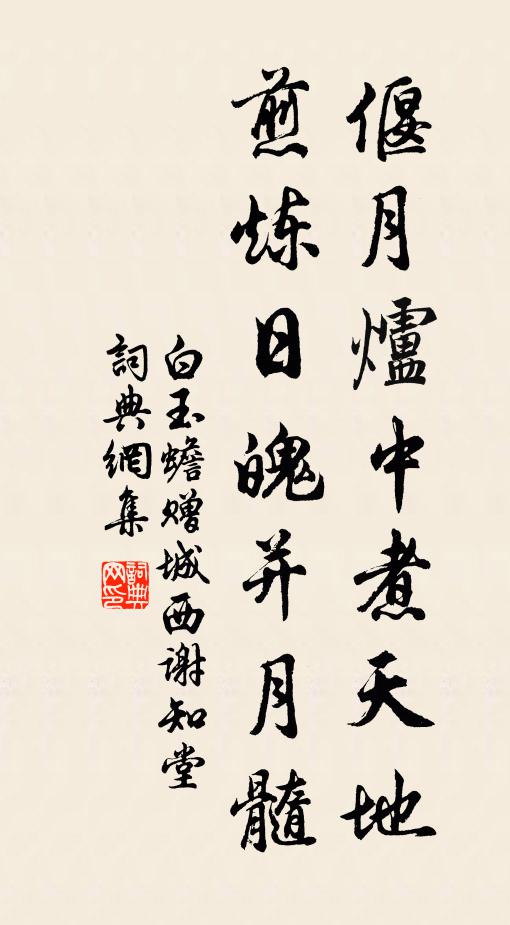 偃月爐中煮天地
煎炼日魄并月髓
白玉蟾赠城西謝知堂
詞典網集
詞典网印